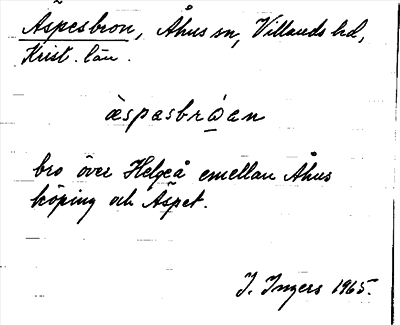 Äspesbron, Åhus sn, Villands hd,
Krist. län.
àspasbròan
bro över Helgeå emellan Åhus
köping och Äspet.
I. Ingers 1965.